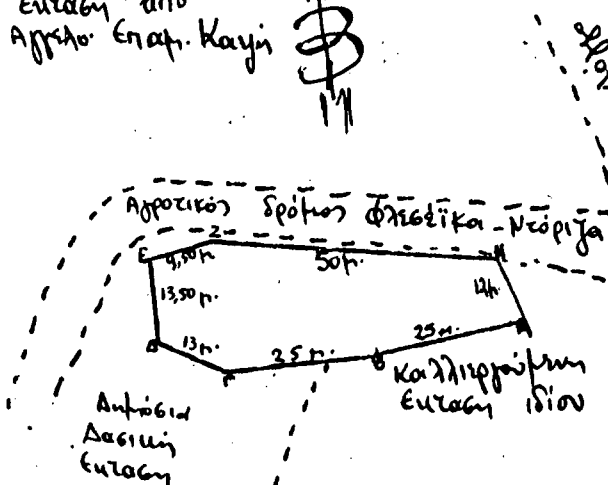 έκταση από
Άγγελο Επαμ. Καψή
Β
Αγροτικός δρόμος Φλεσέϊκα - Ντόριζα
Ε
Ζ
9,50 μ.
50 μ.
13,50 μ.
12 μ.
Δ
13 μ.
Γ
25 μ.
Β
25 μ.
Α
Καλλιεργούμενη
έκταση ιδίου
Δημόσια
Δασική
έκταση